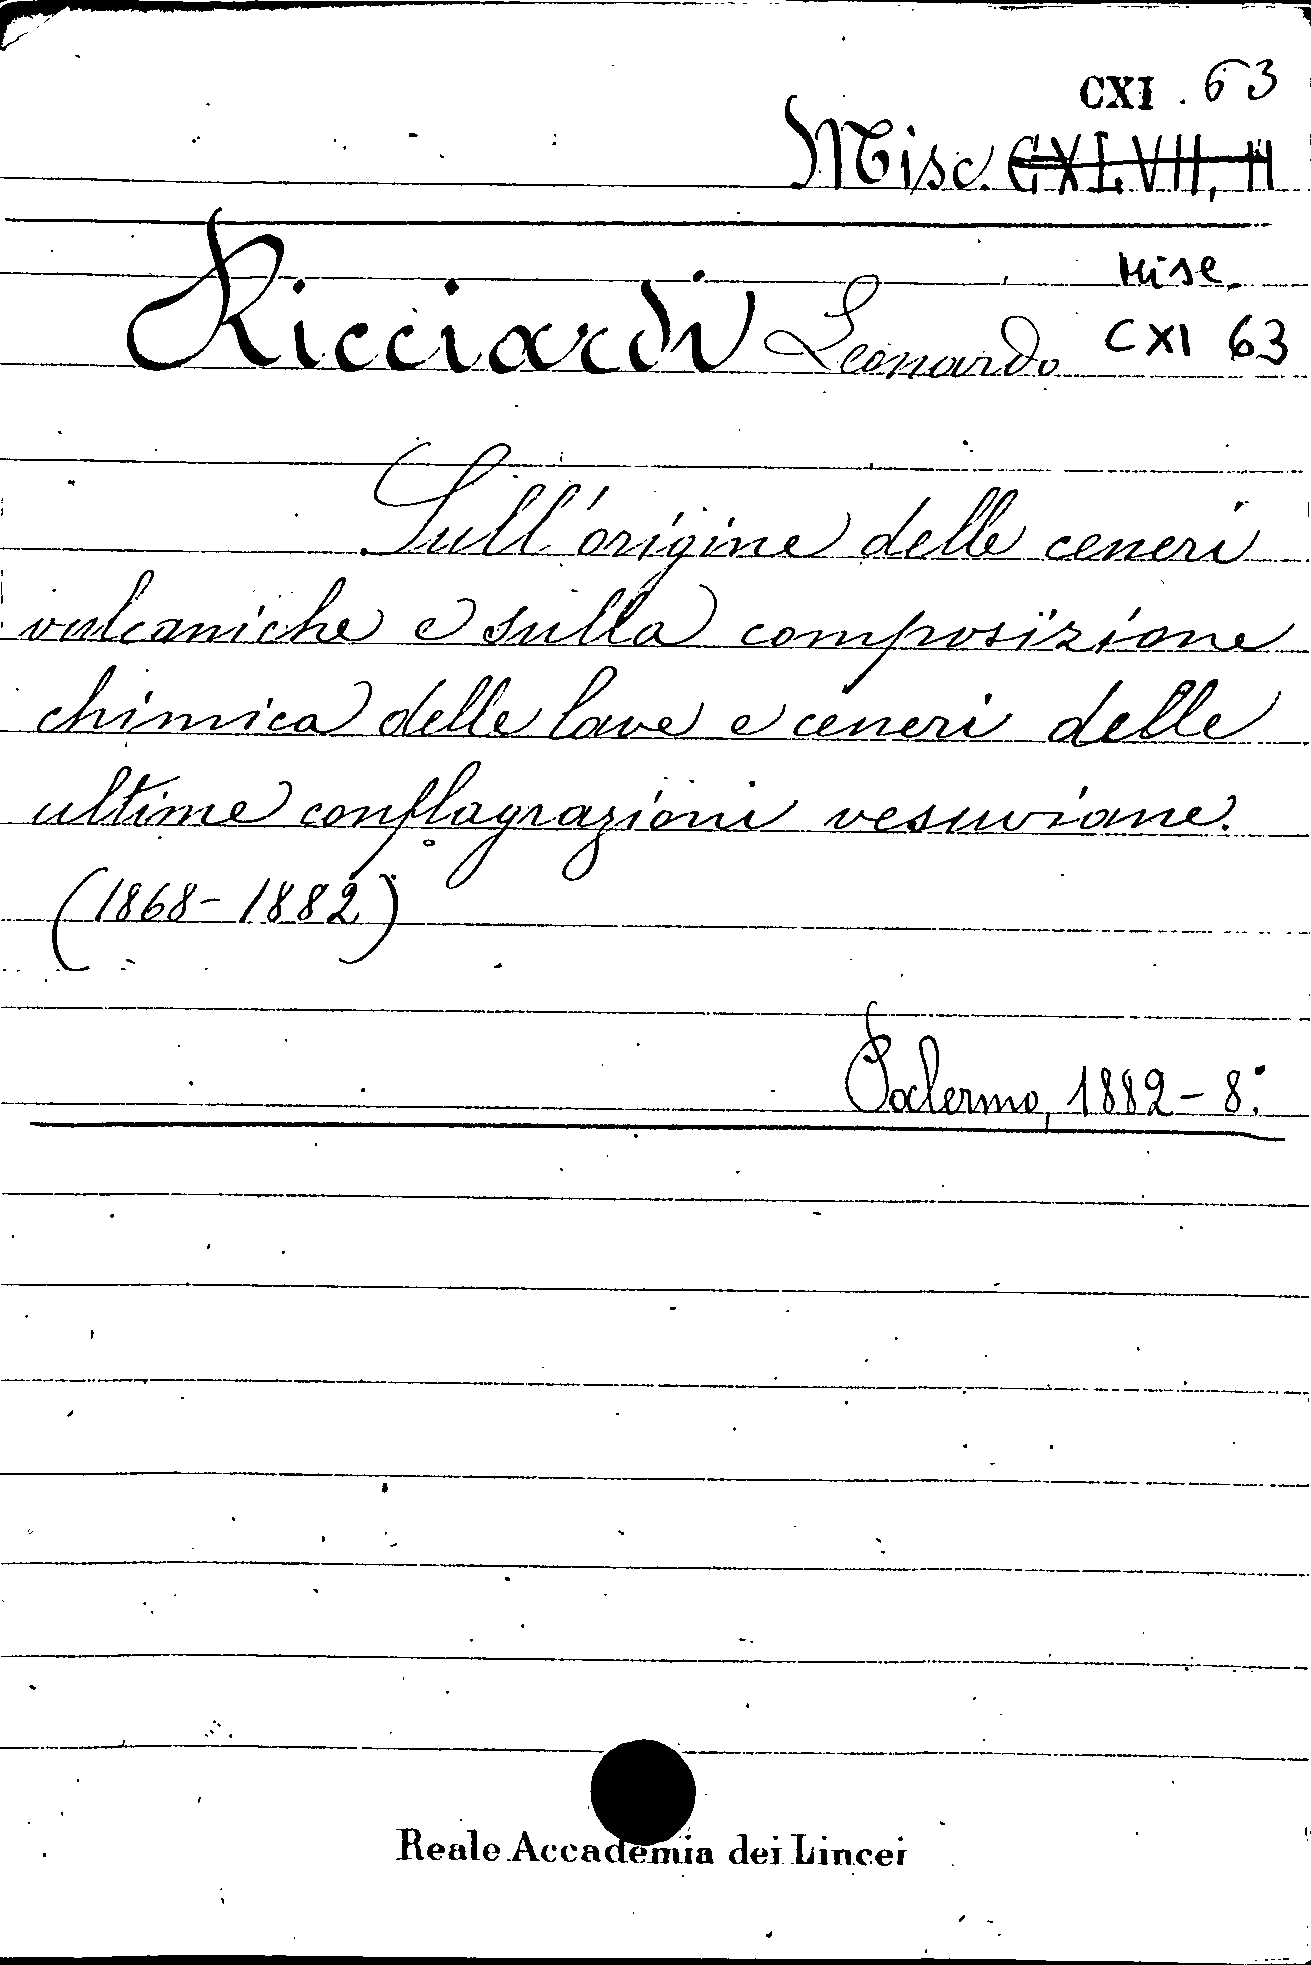 CXI . 63
Misc. CXLVII, 11
Misc.
Ricciardi Leonardo CXI 63
Sull'origine delle ceneri
vulcaniche e sulla composizione
chimica delle lave e ceneri delle
ultime conflagrazioni vesuviane.
(1868-1882)
Palermo, 1882 - 8°.
Reale Accademia dei Lincei